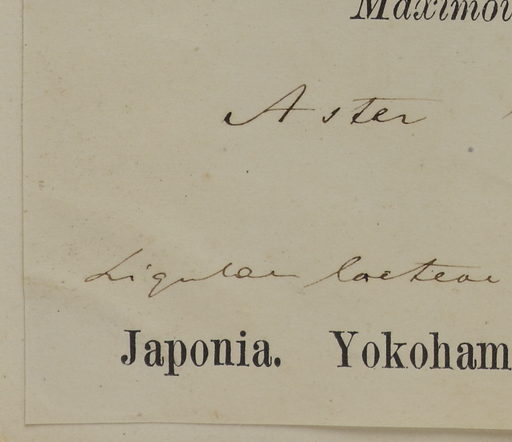 Maximow
Aster
Ligulae lacteae
Japonia. Yokoham